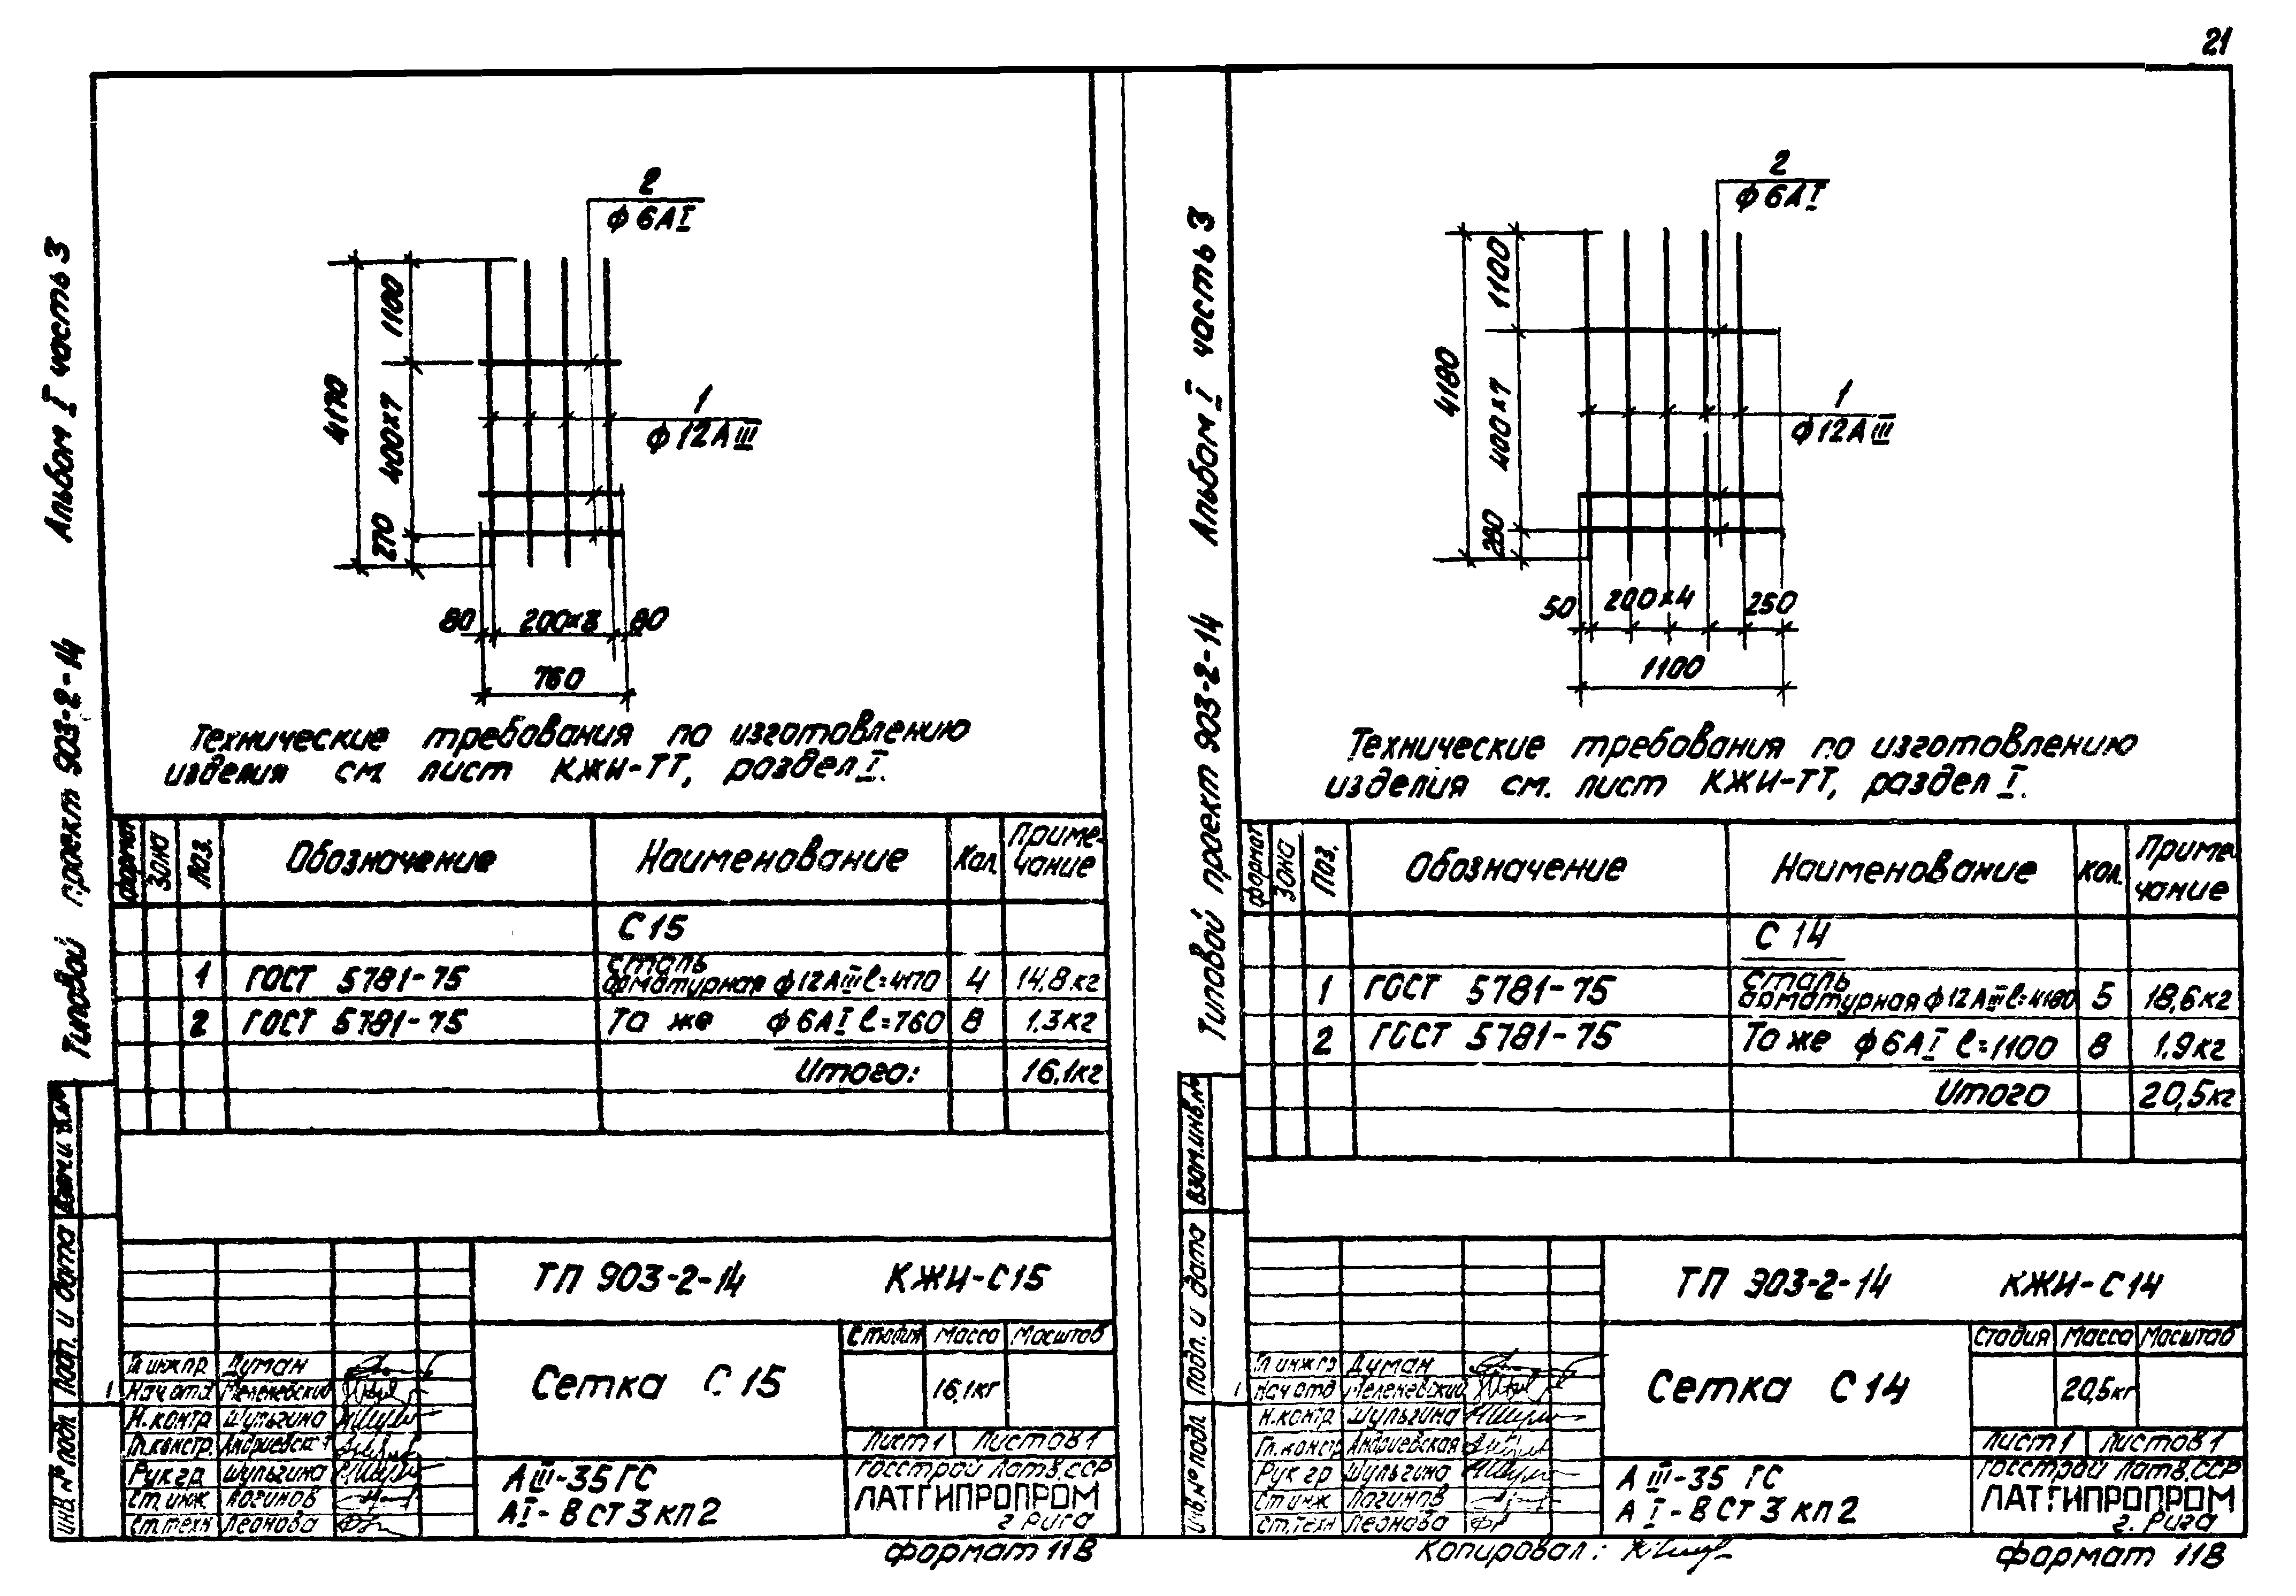 21
Типовой проект 903-2-14 Альбом I часть 3
2
ф6АI
1
ф12АIII
4170
1100
400×7
270
80 200×3 80
760
Технические требования по изготовлению
изделия см. лист КЖИ-ТТ, раздел I.
формат Зона Поз. Обозначение Наименование Кол. Приме-
чание
С 15
1 ГОСТ 5781-75 сталь
арматурная ф12АIII ℓ=4170 4 14,8кг
2 ГОСТ 5781-75 То же ф6АI ℓ=760 8 1.3кг
Итого: 16,1кг
ТП 903-2-14 КЖИ-С15
Стадия Масса Масштаб
Сетка С 15
16,1кг
Лист 1 Листов 1
Гл инж пр Думан
Нач отд Меленевский
Н. контр Шульгина
Гл. констр. Андриевская
Рук гр Шульгина
Ст. инж Логинов
Ст. техн Леонова
АIII-35ГС
АI-В СТ 3 кп 2
Госстрой Латв.ССР
ЛАТГИПРОПРОМ
г Рига
инв. № подл. Подп. и дата Взам.инв.№
формат 11В
Типовой проект 903-2-14 Альбом I часть 3
2
ф6АI
1
ф12АIII
4180
1100
400×7
280
50 200×4 250
1100
Технические требования по изготовлению
изделия см. лист КЖИ-ТТ, раздел I.
формат Зона Поз. Обозначение Наименование Кол. Приме-
чание
С 14
1 ГОСТ 5781-75 Сталь
арматурная ф12АIII ℓ=4180 5 18,6кг
2 ГОСТ 5781-75 То же ф6АI ℓ=1100 8 1.9кг
Итого 20,5кг
ТП 903-2-14 КЖИ-С14
Стадия Масса Масштаб
Сетка С 14
20,5кг
Лист 1 Листов 1
Гл инж пр Думан
Нач отд Меленевский
Н. контр Шульгина
Гл. констр Андриевская
Рук гр Шульгина
Ст инж Логинов
Ст. техн Леонова
А III-35 ГС
А I-В СТ 3 кп 2
Госстрой Латв.ССР
ЛАТГИПРОПРОМ
г. Рига
Инв. № подл. Подп. и дата Взам.инв.№
Копировал:
формат 11В